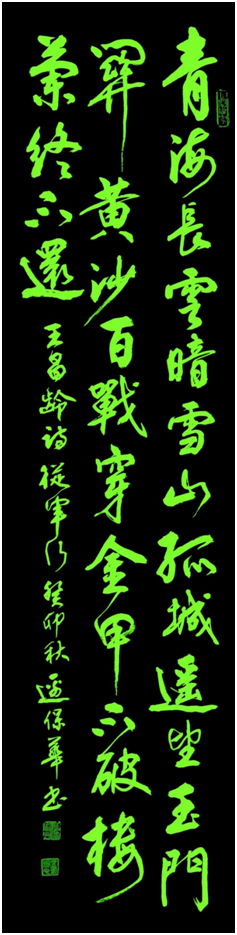 青海長雲暗雪山孤城遥望玉門
關黄沙百戰穿金甲不破楼
蘭终不還 王昌齡詩從軍行 癸卯秋 保華书